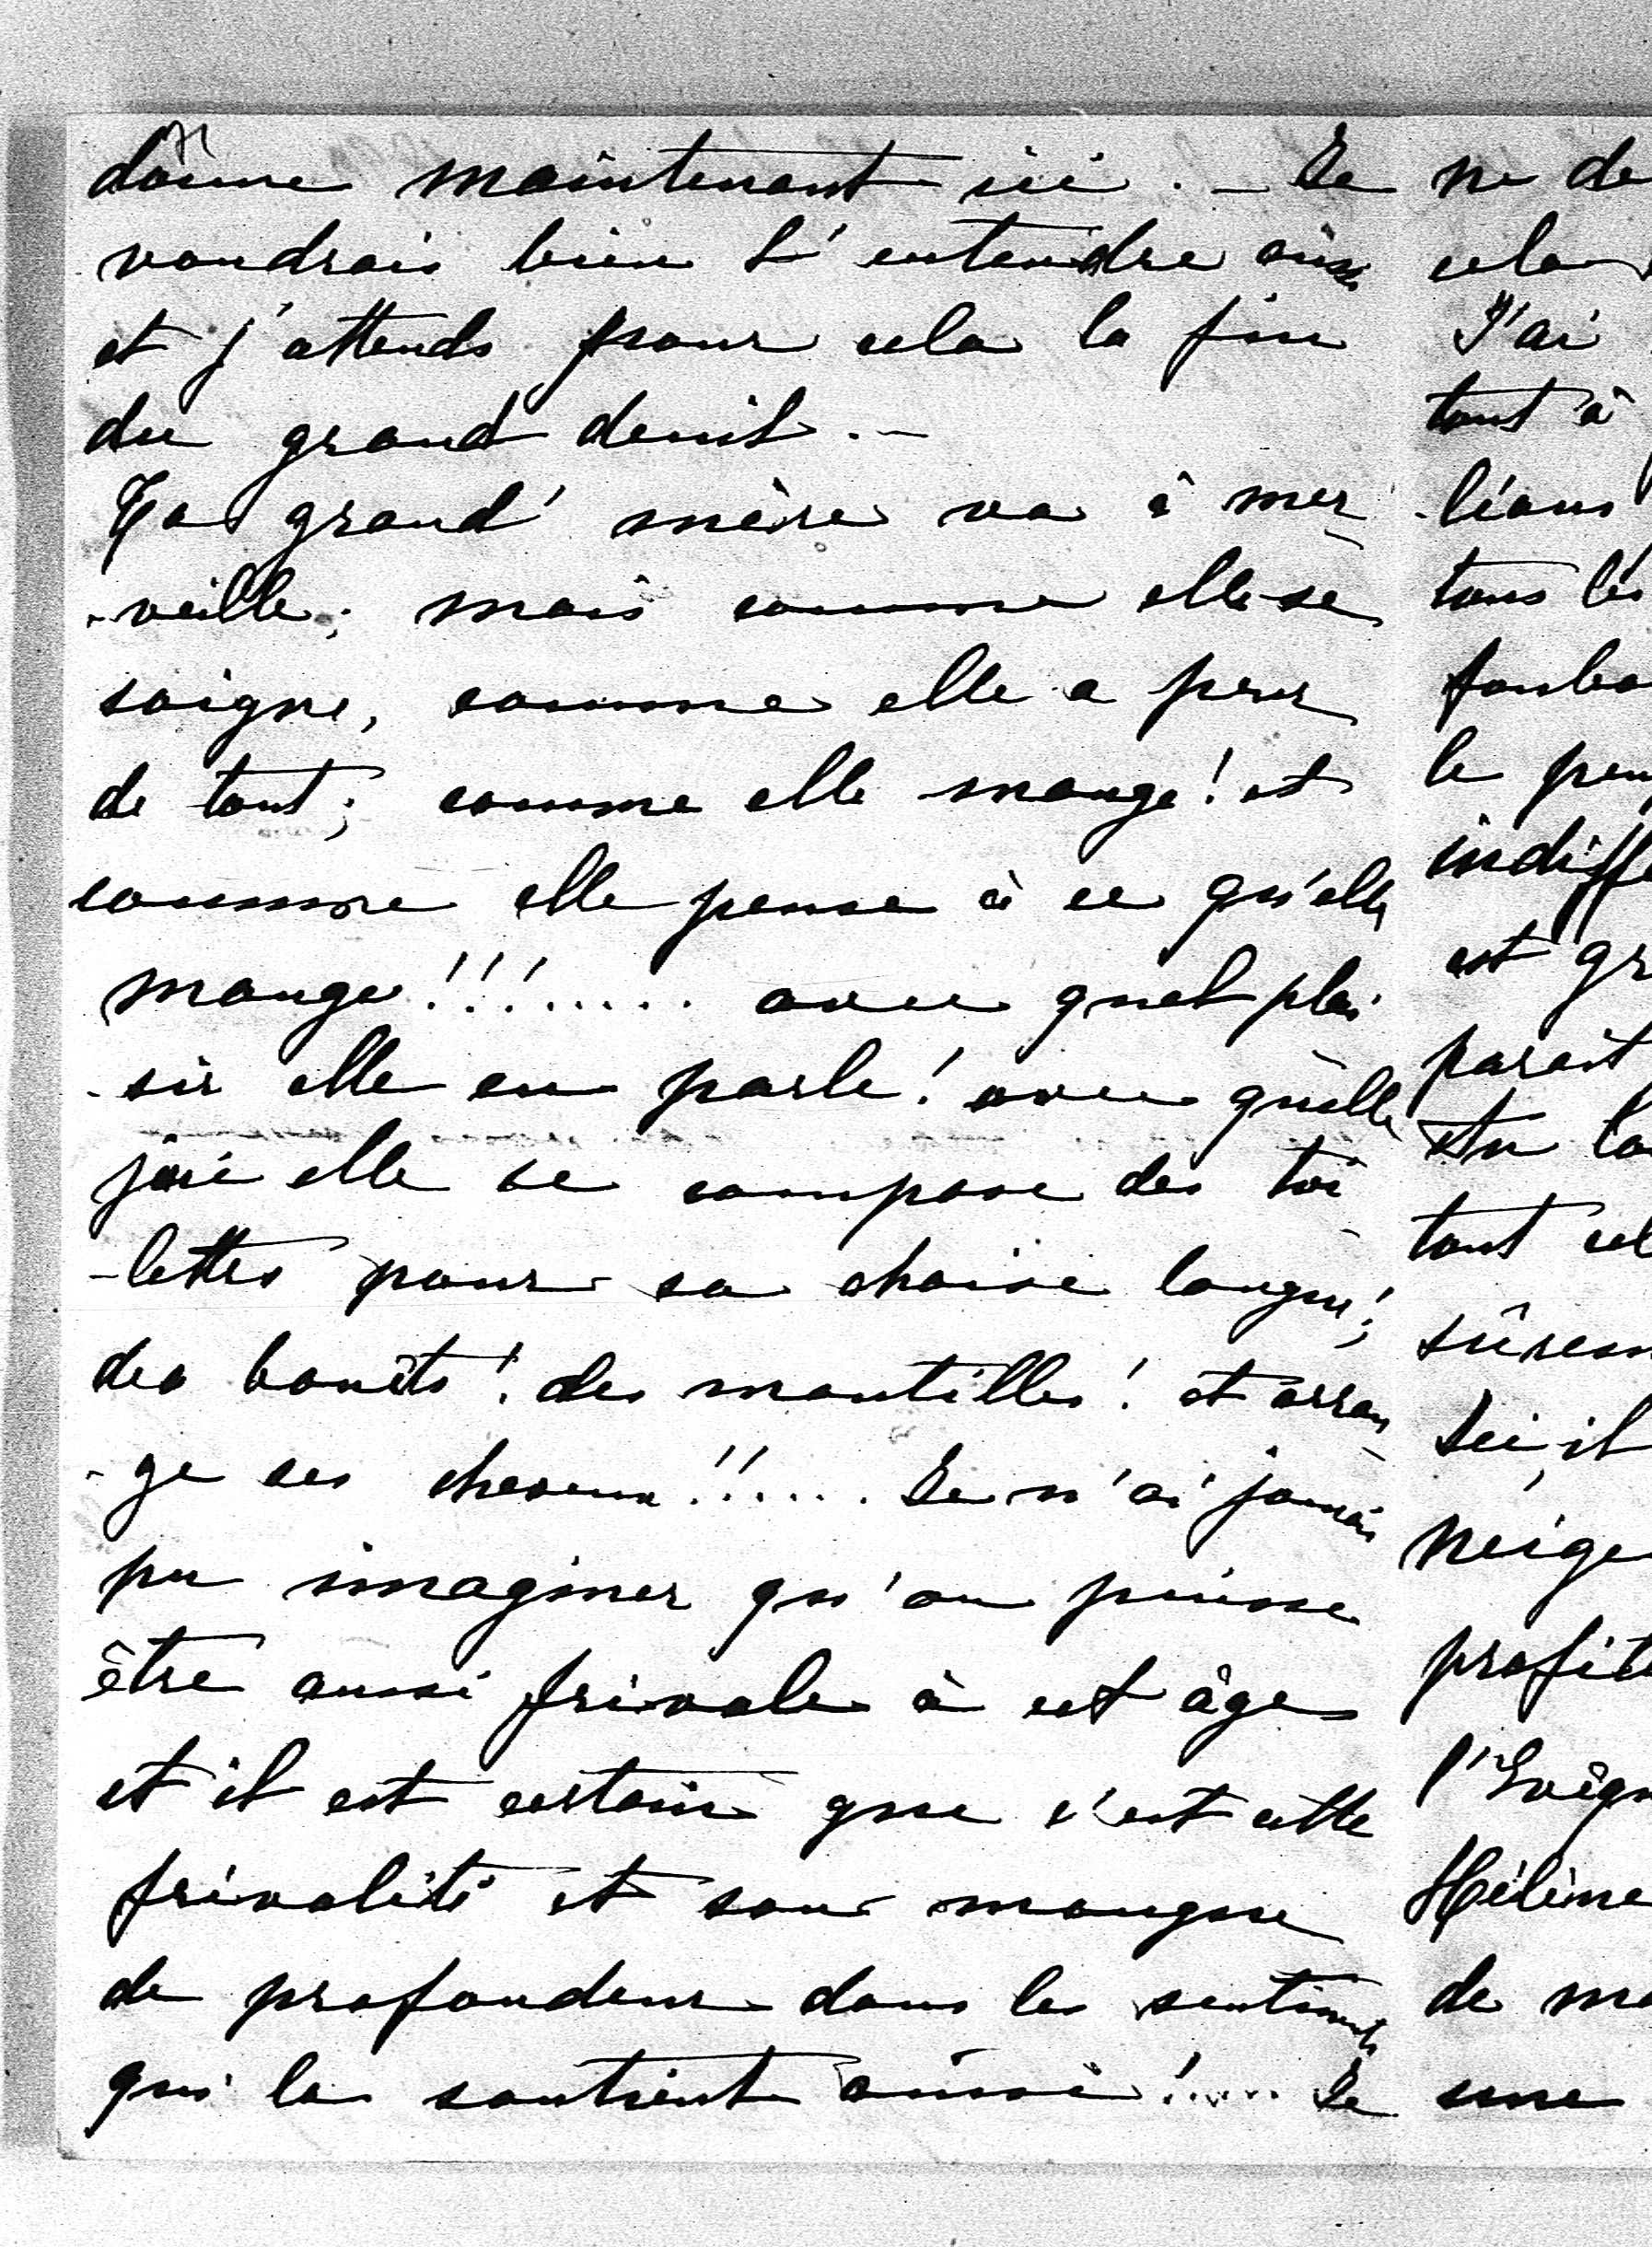 donne maintenant ici. — Je
voudrais bien l'entendre aussi
et j'attends pour cela la fin
du grand deuil. —
Ta grand' mère va à mer-
-veille; mais comme elle se
soigne, comme elle a peur
de tout; comme elle mange! et
comme elle pense à ce qu'elle
mange!!!....... avec quel plai-
-sir elle en parle! avec quelle
joie elle se compose des toi-
-lettes pour sa chaise longue!
des bonets! des mantilles! et arran-
-ge ses cheveux!!..... Je n'ai jamais
pu imaginer qu'on puisse
être aussi frivole à cet âge
et il est certain que c'est cette
frivolité et son manque
de profondeur dans les sentiments
qui la soutient ainsi!..... Je
ne de
cela
J'ai
tout à
-léans
tous les
le peu
indiffé
est gr
parait
tout cel
sûrem
Ici il
neige
profite
Hélène
de ma
une